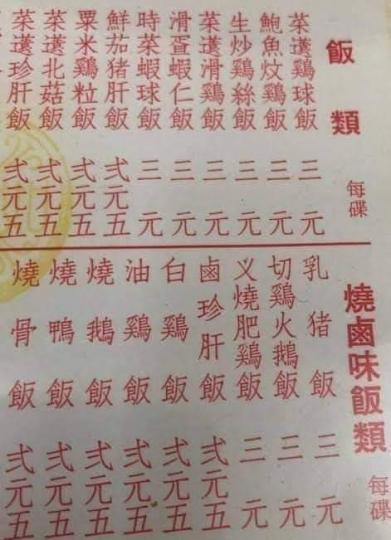 飯類
每碟
菜薳鷄球飯 三元
鮑魚炆鷄飯 三元
生炒鷄絲飯 三元
菜薳滑鷄飯 三元
滑蛋蝦仁飯 三元
時菜蝦球飯 三元
鮮茄猪肝飯 弍元五
粟米鷄粒飯 弍元五
菜薳北菇飯 弍元五
菜薳珍肝飯 弍元五
燒鹵味飯類
每碟
乳猪飯 三元
切鷄火鵝飯 三元
义燒肥鷄飯 三元
鹵珍肝飯 弍元五
白鷄飯 弍元五
油鷄飯 弍元五
燒鵝飯 弍元五
燒鴨飯 弍元五
燒骨飯 弍元五